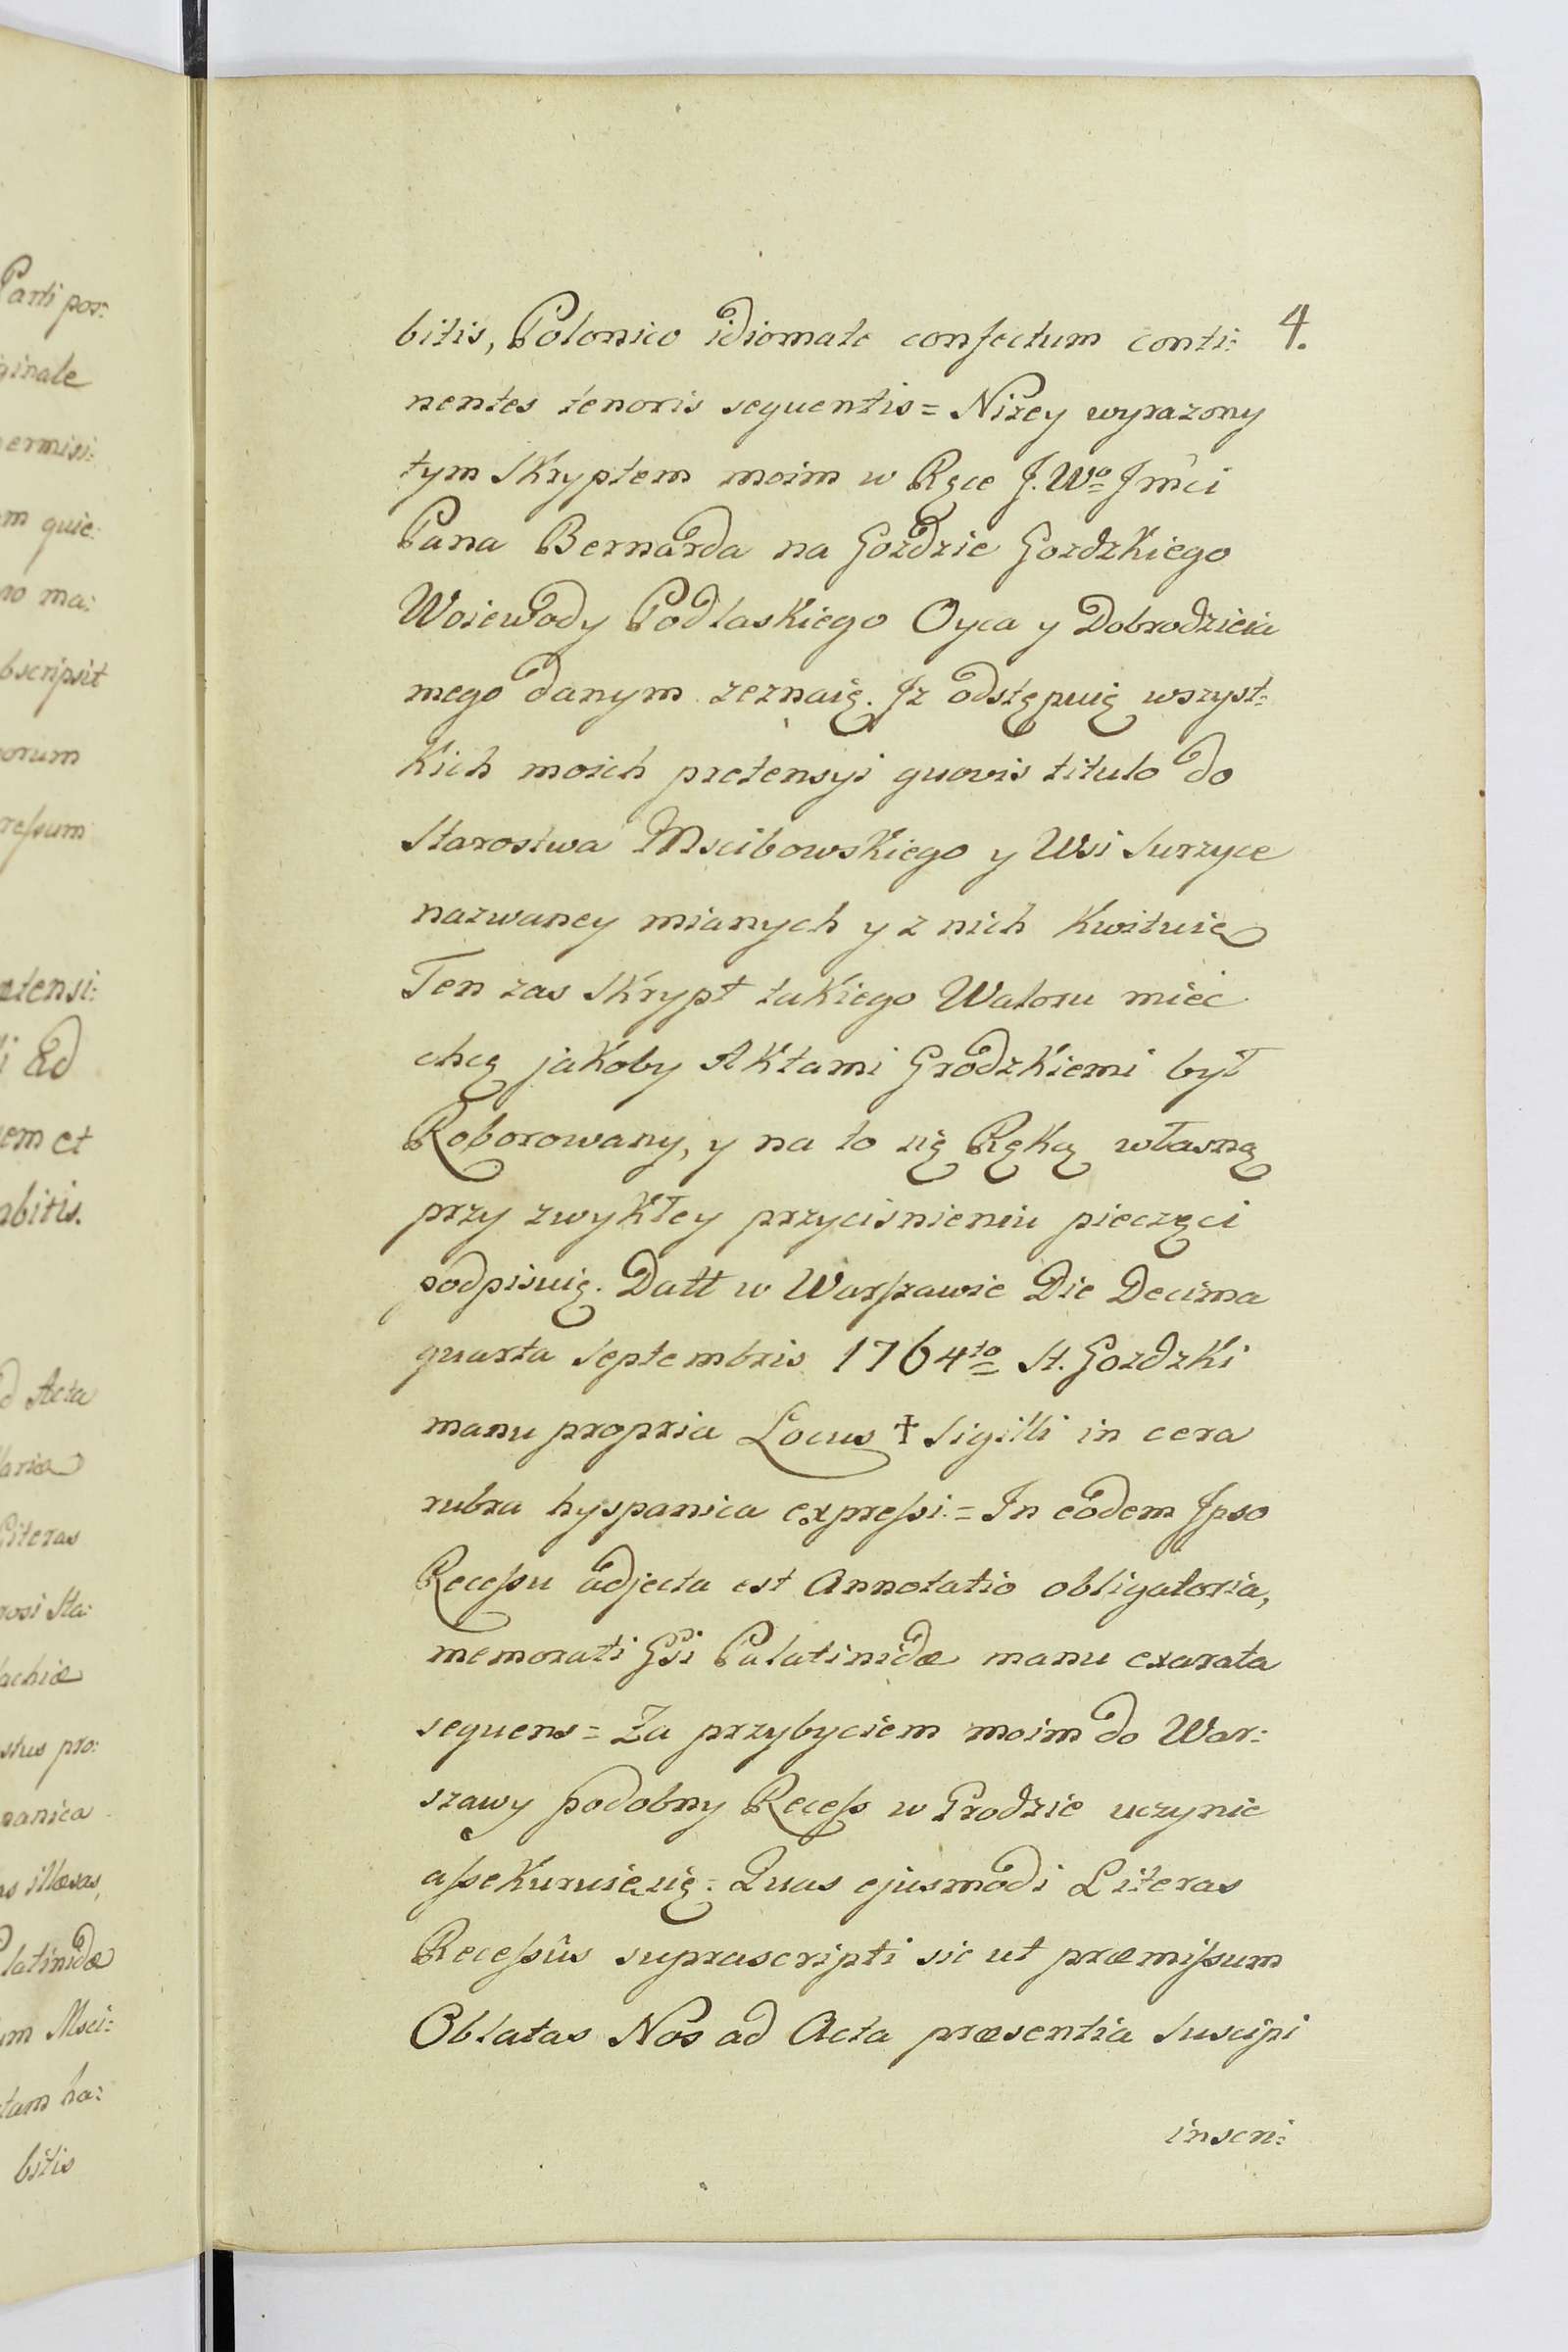 bitis, Polonico idiomate confectum conti: 4.
nentes tenoris sequentis = Niżey wyrazony
tym Skryptem moim w Ręce J. Wo Jmci
Pana Bernarda na Goździe Gozdzkiego
Woiewody Podlaskiego Oyca y Dobrodzieia
mego danym zeznaię. Jz odstępuię wszyst:
kich moich pretensyi quovis titulo do
Starostwa Mscibowskiego y Wsi Surzyce
nazwaney mianych y z nich kwituię
Ten zas Skrypt takiego Waloru miec
chcę jakoby Aktami Grodzkiemi był
Roborowany, y na to się Ręką własną
przy zwykłey przycisnieniu pieczęci
podpisuię. Datt w Warszawie Die Decima
quarta Septembris 1764to St. Gozdzki
manu propria Locus ✝ Sigilli in cera
rubra hyspanica expressi = In eodem Ipso
Recessu adjecta est Annotatio obligatoria,
memorati Gsi Palatinidæ manu exarata
sequens = Za przybyciem moim do War:
szawy podobny Recess w Grodzie uczynic
assekuruię się. Quas ejusmodi Literas
Recessûs suprascripti sic ut præmissum
Oblatas Nos ad Acta præsentia Suscipi
inscri:
Parti por:
ginale
permisi:
m quie:
ro ma:
bscripsit
orum
ressum
tensi:
i ad
em et
abitis.
d Acta
lariæ
Literas
rosi Sta:
lachiæ
stus pro:
panica
as illæsas,
latinidæ
um Msci:
tam ha:
bitis